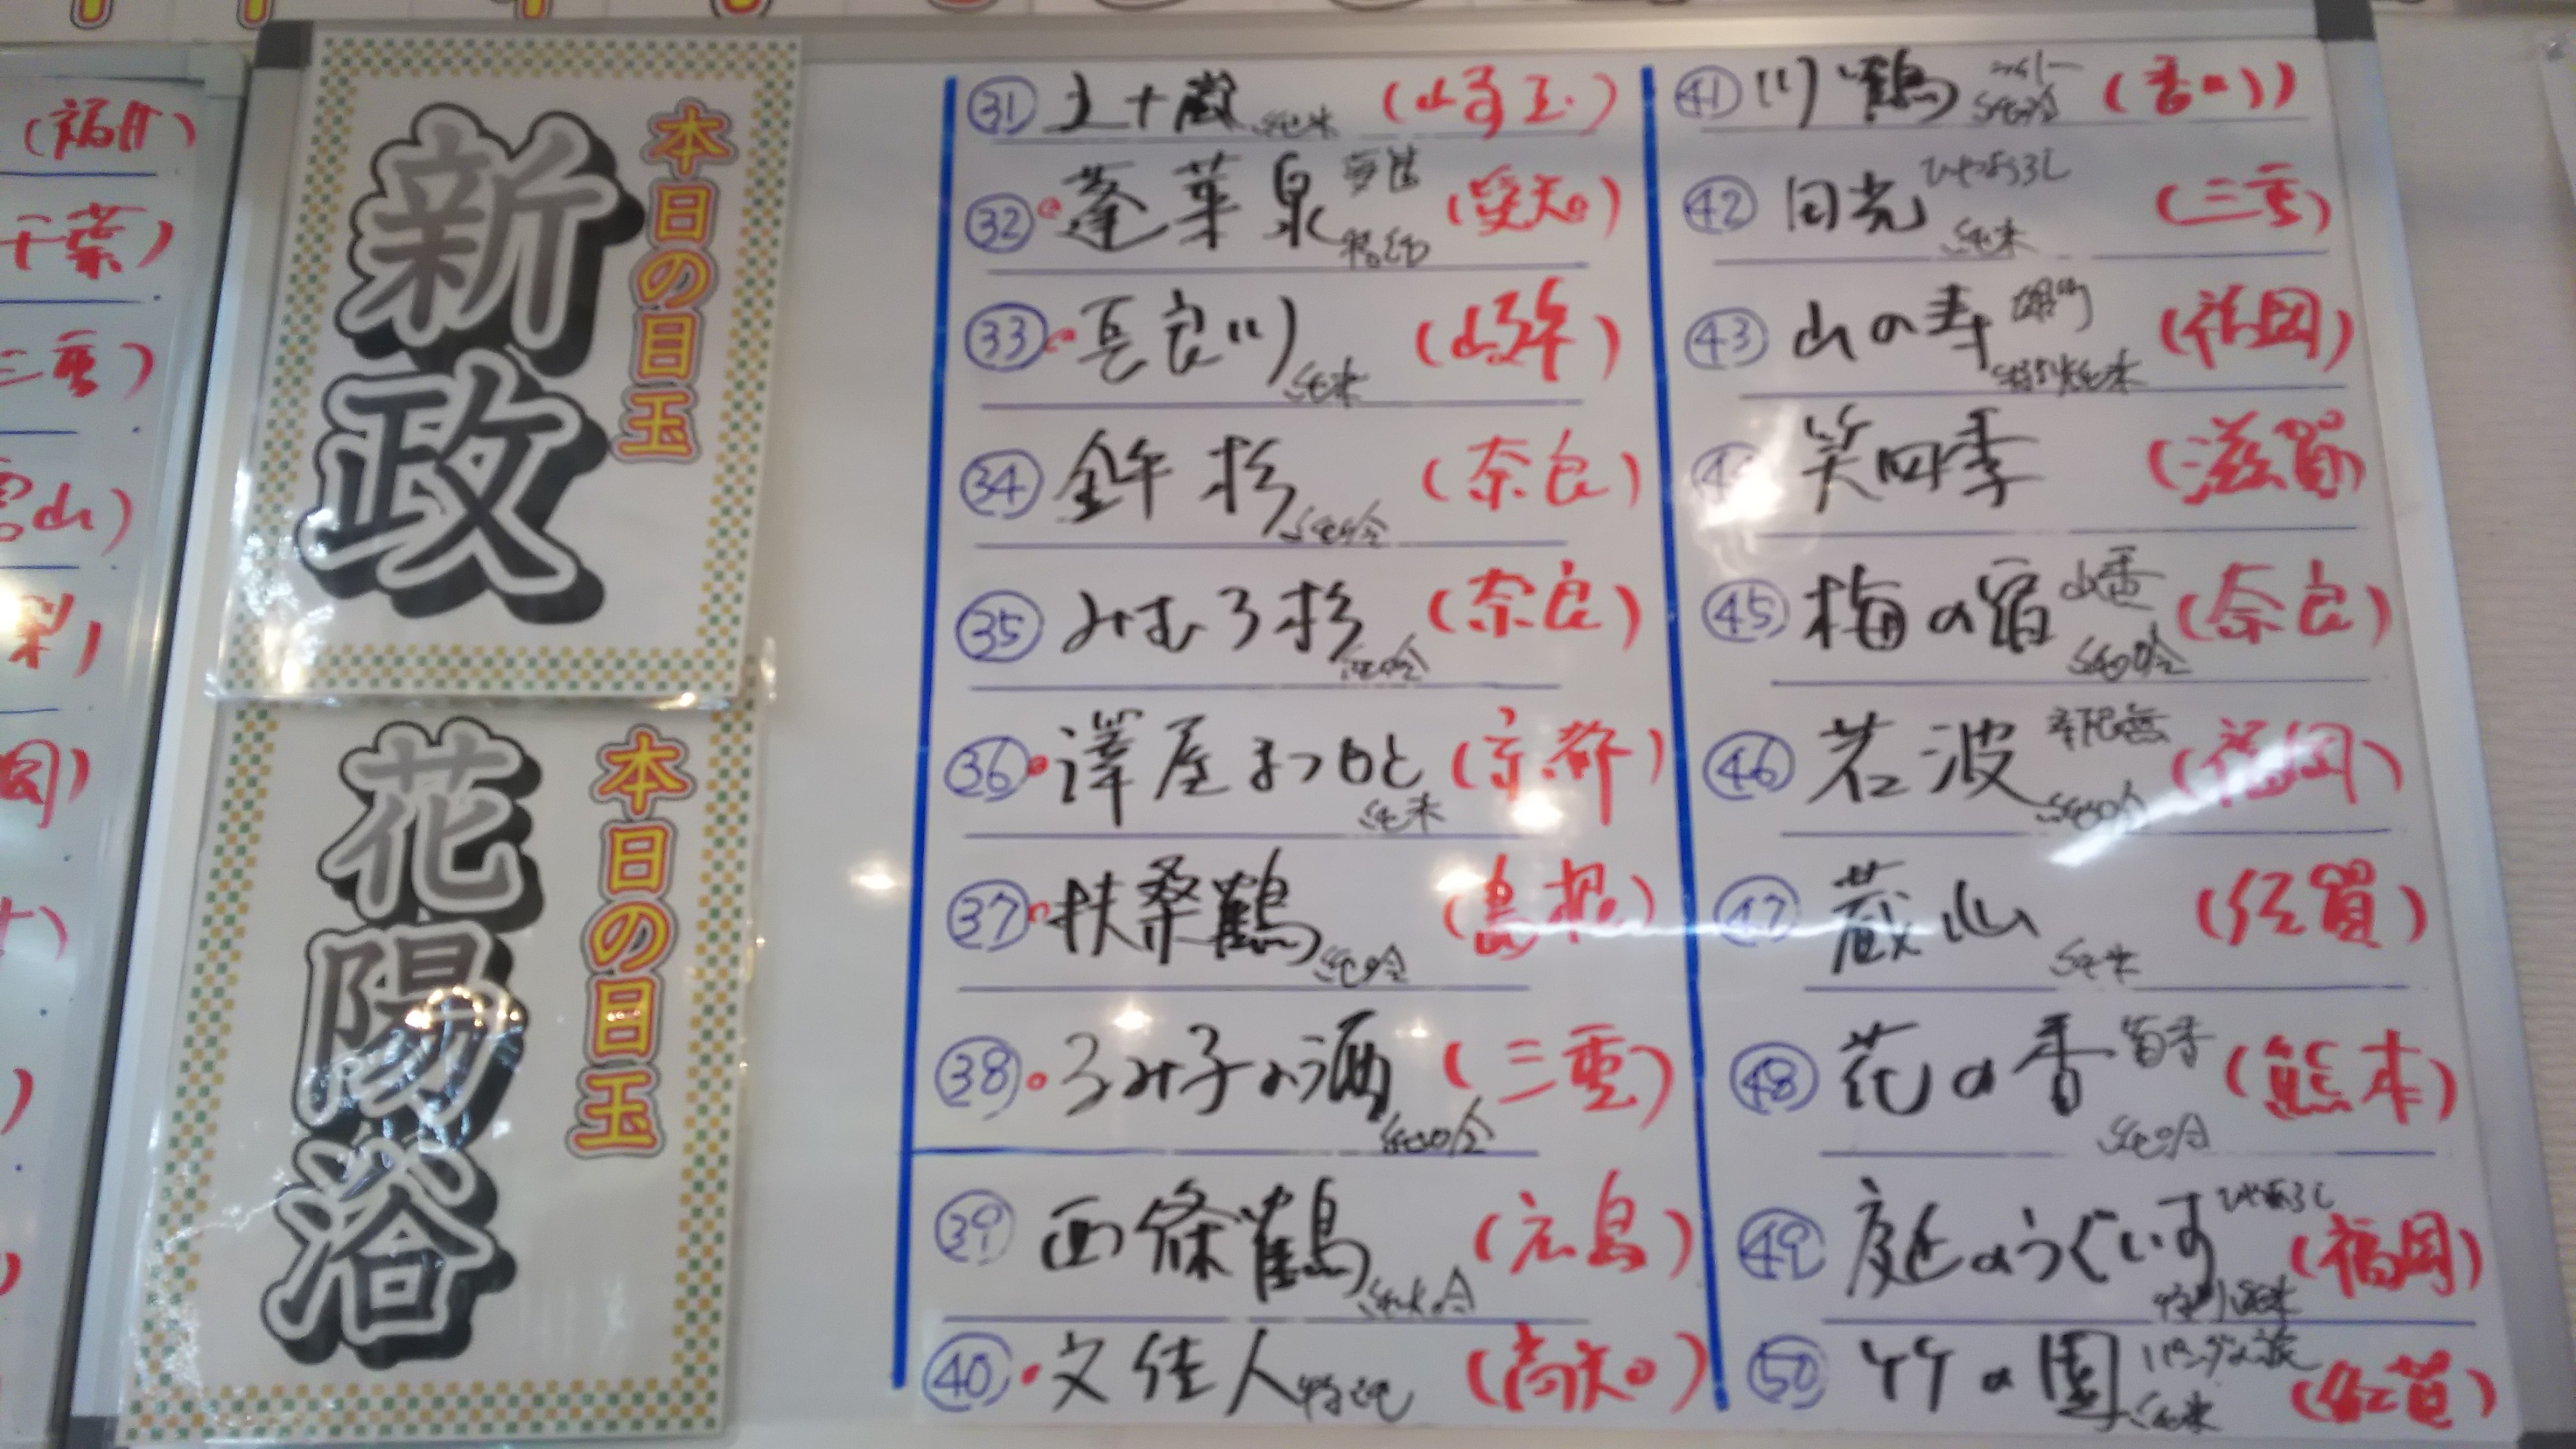 (福井)
千葉)
三重)
山)
梨)
岡)
本日の目玉
新政
本日の目玉
花陽浴
31 五十嵐 純米 (埼玉)
32 蓬莱泉 特純 (愛知)
33 長良川 純米 (岐阜)
34 金鉾杉 純吟 (奈良)
35 みむろ杉 純吟 (奈良)
36 澤屋まつもと 純米 (京都)
37 扶桑鶴 純吟 (島根)
38 るみ子の酒 純吟 (三重)
39 西條鶴 純大吟 (広島)
40 文佳人 特純 (高知)
41 川鶴 純吟 (香川)
42 日光 ひやおろし 純米 (三重)
43 山の寿 雄町 特別純米 (福岡)
44 笑四季 (滋賀)
45 梅の宿 山香 純吟 (奈良)
46 若波 純吟 (福岡)
47 蔵心 純米 (佐賀)
48 花の香 純吟 (熊本)
49 庭のうぐいす ひやおろし 特別純米 (福岡)
50 竹の園 純米 (佐賀)